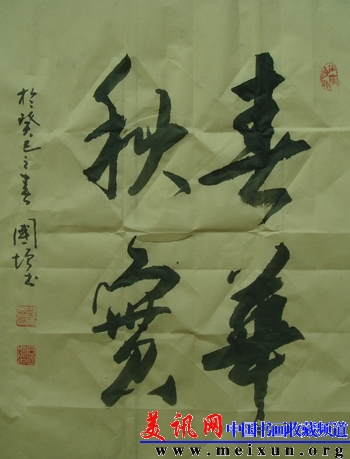 春華
秋實
於癸巳之春 國增书
美讯网 中国书画收藏频道
www.meixun.org